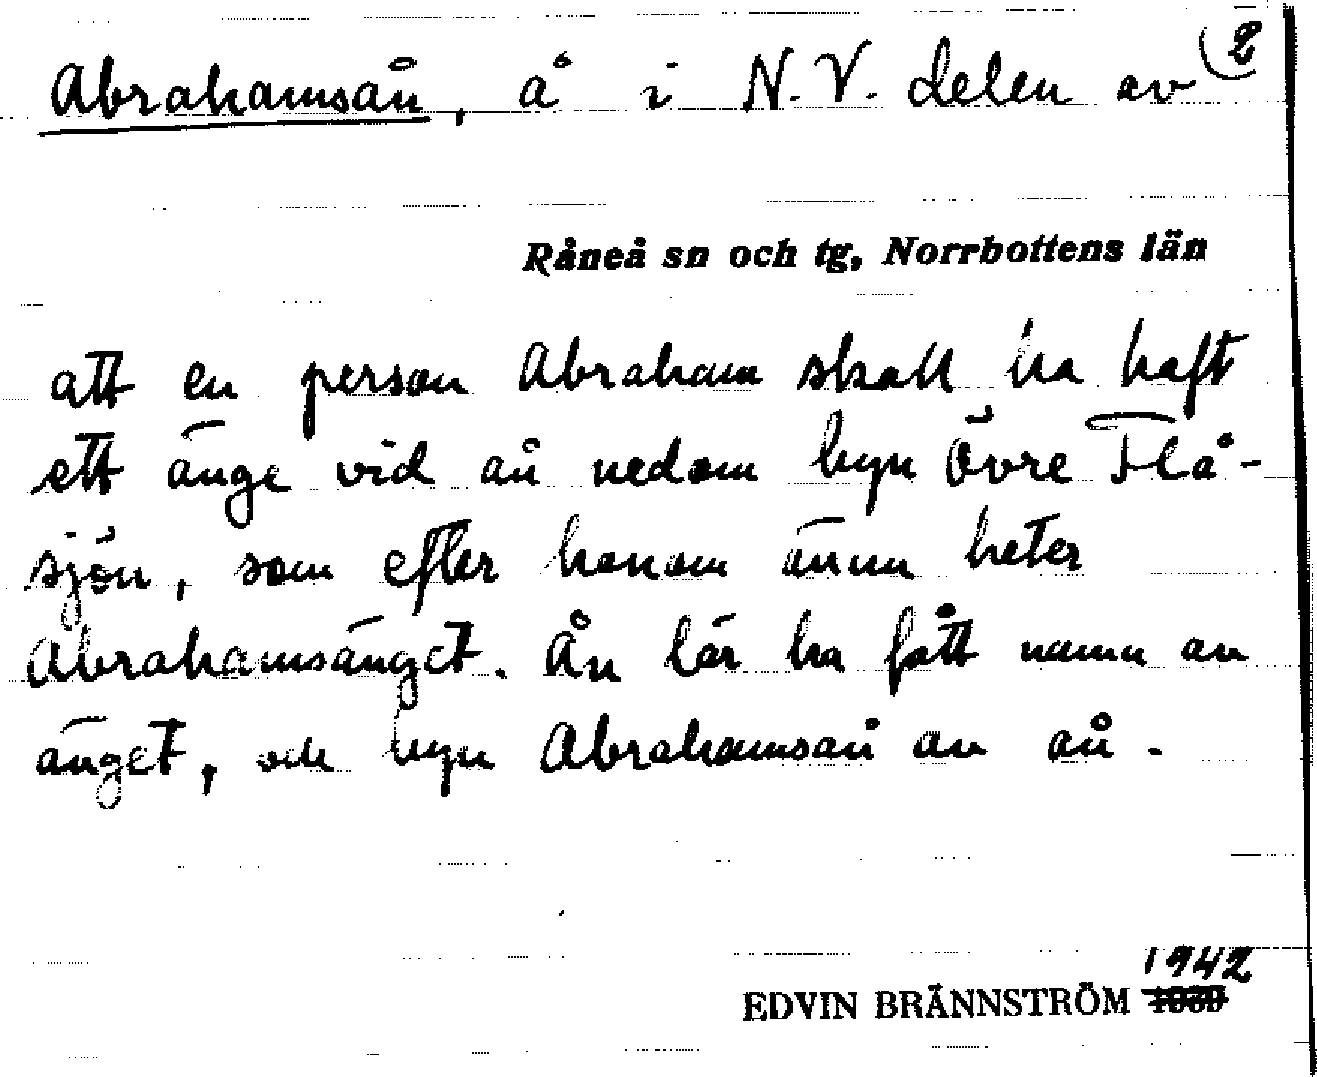 Abrahamsån, å i N.V. delen av
2
Råneå sn och tg, Norrbottens län
att en person Abraham skall ha haft
ett änge vid ån nedom byn Övre Flå-
sjön, som efter honom ännu heter
Abrahamsänget. Ån lär ha fått namn av
änget, och byn Abrahamsån av ån.
1942
EDVIN BRÄNNSTRÖM